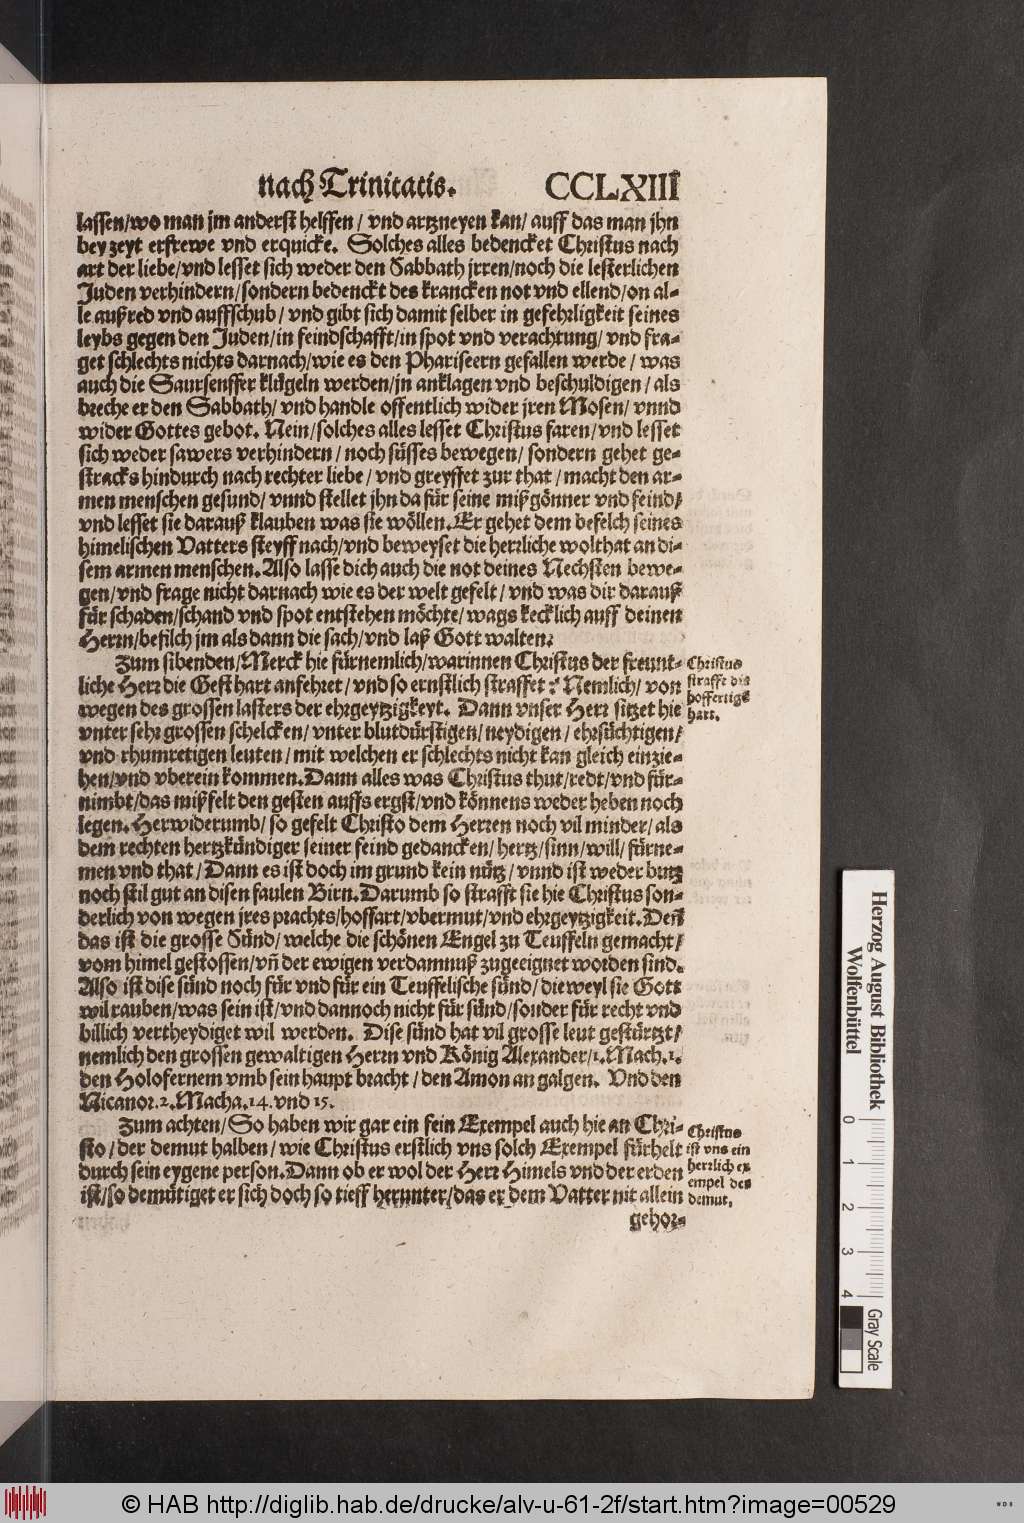 nach Trinitatis. CCLXIII
lassen/wo man jm anderst helffen / vnd artzneyen kan/ auff das man jhn
bey zeyt erfrewe vnd erquicke. Solches alles bedencket Christus nach
art der liebe/vnd lesset sich weder den Sabbath jrren/noch die lesterlichen
Juden verhindern/sondern bedenckt des krancken not vnd ellend/on al-
le außred vnd auffschub / vnd gibt sich damit selber in gefehrligkeit seines
leybs gegen den Juden/in feindschafft/in spot vnd verachtung/ vnd fra-
get schlechts nichts darnach/wie es den Phariseern gefallen werde / was
auch die Saursenffer klügeln werden/jn anklagen vnd beschuldigen / als
breche er den Sabbath/ vnd handle offentlich wider jren Mosen/ vnnd
wider Gottes gebot. Nein/solches alles lesset Christus faren/vnd lesset
sich weder sawers verhindern / noch süsses bewegen/ sondern gehet ge-
stracks hindurch nach rechter liebe / vnd greyffet zur that / macht den ar-
men menschen gesund/ vnnd stellet jhn da für seine mißgönner vnd feind/
vnd lesset sie darauß klauben was sie wöllen. Er gehet dem befelch seines
himelischen Vatters steyff nach/vnd beweyset die herrliche wolthat an di-
sem armen menschen. Also lasse dich auch die not deines Nechsten bewe-
gen/vnd frage nicht darnach wie es der welt gefelt / vnd was dir darauß
für schaden/schand vnd spot entstehen möchte/ wags kecklich auff deinen
Herrn/befilch jm als dann die sach/vnd laß Gott walten.
Zum sibenden/Merck hie fürnemlich/warinnen Christus der freunt-
liche Herr die Gest hart anfehret / vnd so ernstlich straffet : Nemlich/ von
wegen des grossen lasters der ehrgeytzigkeyt. Dann vnser Herr sitzet hie
vnter sehr grossen schelcken/ vnter blutdürstigen/ neydigen / ehrsüchtigen/
vnd rhumretigen leuten / mit welchen er schlechts nicht kan gleich einzie-
hen/vnd vberein kommen. Dann alles was Christus thut/redt/vnd für-
nimbt/das mißfelt den gesten auffs ergst/vnd könnens weder heben noch
legen. Herwiderumb/ so gefelt Christo dem Herren noch vil minder/ als
dem rechten hertzkündiger seiner feind gedancken/ hertz/sinn/will/ fürne-
men vnd that / Dann es ist doch im grund kein nütz / vnnd ist weder butz
noch stil gut an disen faulen Birn. Darumb so strafft sie hie Christus son-
derlich von wegen jres prachts/hoffart/vbermut/vnd ehrgeytzigkeit. Deñ
das ist die grosse Sünd/ welche die schönen Engel zu Teuffeln gemacht/
vom himel gestossen/vñ der ewigen verdamnuß zugeeignet worden sind.
Also ist dise sünd noch für vnd für ein Teuffelische sünd/ die weyl sie Gott
wil rauben/was sein ist/vnd dannoch nicht für sünd/sonder für recht vnd
billich vertheydiget wil werden. Dise sünd hat vil grosse leut gestürtzt/
nemlich den grossen gewaltigen Herrn vnd König Alexander/1. Mach.1.
den Holofernem vmb sein haupt bracht / den Amon an galgen. Vnd den
Nicanor.2. Macha.14.vnd 15.
Christus
strafft die
hoffertigẽ
hart.
Zum achten/ So haben wir gar ein fein Exempel auch hie an Chri-
sto / der demut halben/ wie Christus erstlich vns solch Exempel fürhelt
durch sein eygene person. Dann ob er wol der Herr Himels vnd der erden
ist/so demütiget er sich doch so tieff herunter/das er dem Vatter nit allein
Christus
ist vns ein
herrlich ex
empel der
demut.
gehor-
Herzog August Bibliothek
Wolfenbüttel
0 1 2 3 4
Gray Scale
© HAB http://diglib.hab.de/drucke/alv-u-61-2f/start.htm?image=00529